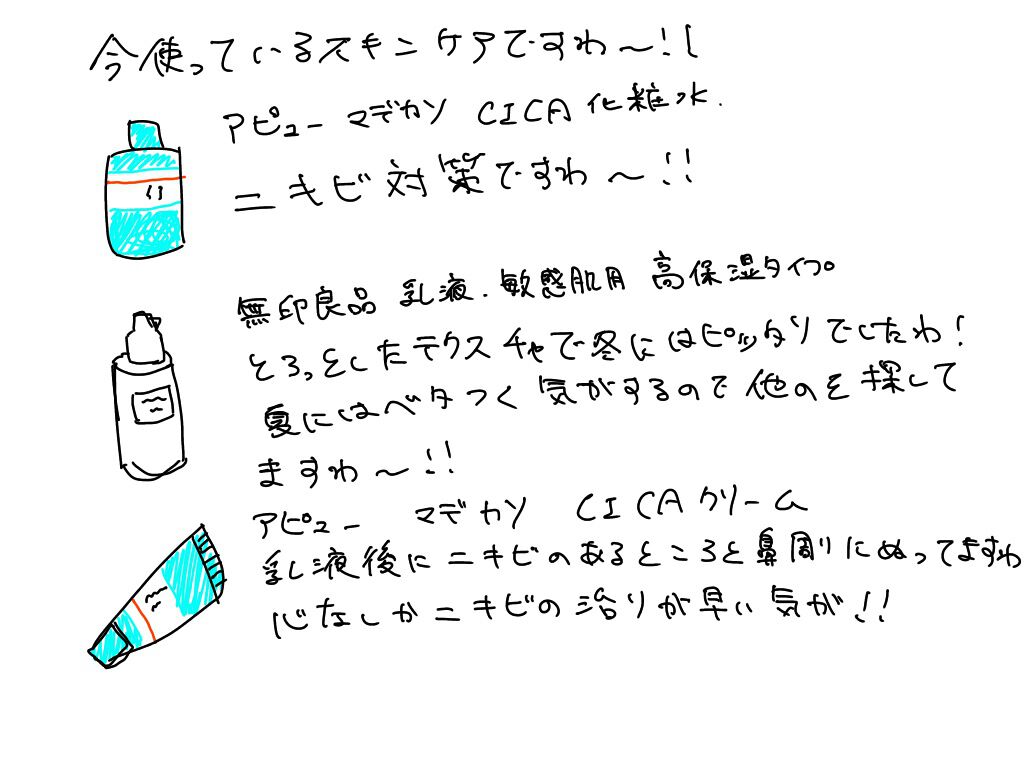 今使っているスキンケアですわ〜!!
アピュー マデカソ CICA 化粧水.
ニキビ対策ですわ〜!!
無印良品 乳液.敏感肌用 高保湿タイプ。
とろっとしたテクスチャで冬にはピッタリでしたわ!
夏にはベタつく気がするので他のを探して
ますわ〜!!
アピュー マデカソ CICAクリーム
乳液後にニキビのあるところと鼻周りにぬってますわ
心なしかニキビの治りが早い気が!!